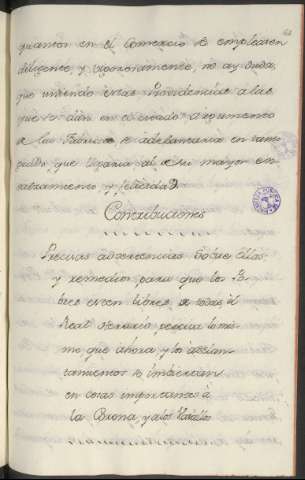 quantos en el Comercio se emplearen
diligente, y vigorosamente, no ay duda,
que uniendo estas Providencias a las
que se dan en el citado argumento
de las Fabricas se adelantaria en
que llegaria al de su mayor en
y felicidad.
Contribuciones
Precisas advertencias sobre Ellas
y remedios, para que los
bres esten libres de todas el
Real Herario perciva lo mis
mo que ahora y los
tamientos se inbiertan
en cosas importantes à
la Corona, y a los Vasallos